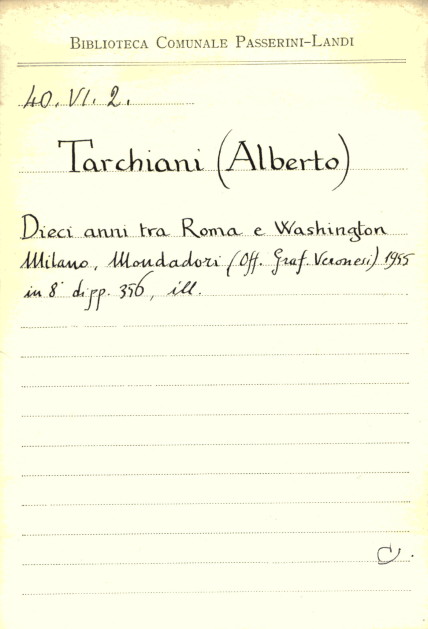 BIBLIOTECA COMUNALE PASSERINI-LANDI
40. VI. 2.
Tarchiani (Alberto)
Dieci anni tra Roma e Washington
Milano, Mondadori (Off. Graf. Veronesi) 1955
in 8° di pp. 356, ill.